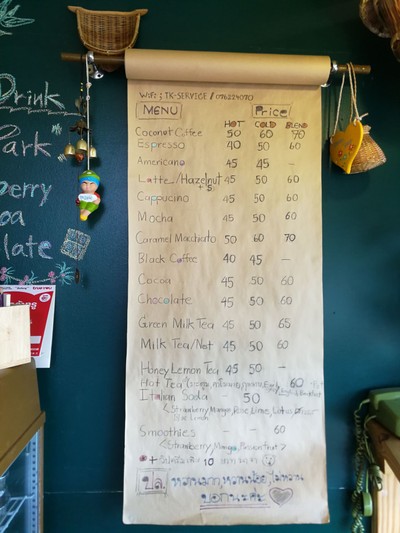 Drink
Park
erry
oa
late
WiFi : TK-SERVICE / 076224070
MENU Price
HOT COLD BLEND
Coconut Coffee 50 60 70
Espresso 40 50 60
Americano 45 45 -
Latte/Hazelnut 45 50 60
+5
Cappucino 45 50 60
Mocha 45 50 60
Caramel Macchiato 50 60 70
Black Coffee 40 45 -
Cocoa 45 50 60
Chocolate 45 50 60
Green Milk Tea 45 50 65
Milk Tea/Hot 45 50 60
Honey Lemon Tea 45 50 -
Hot Tea 60
Italian Soda - 50
Strawberry, Mango, Rose, Lime,
Smoothies - - 60
Strawberry, Mango,
10
ปล. หวานมาก, หวานน้อย, ไม่หวาน
บอกนะคะ